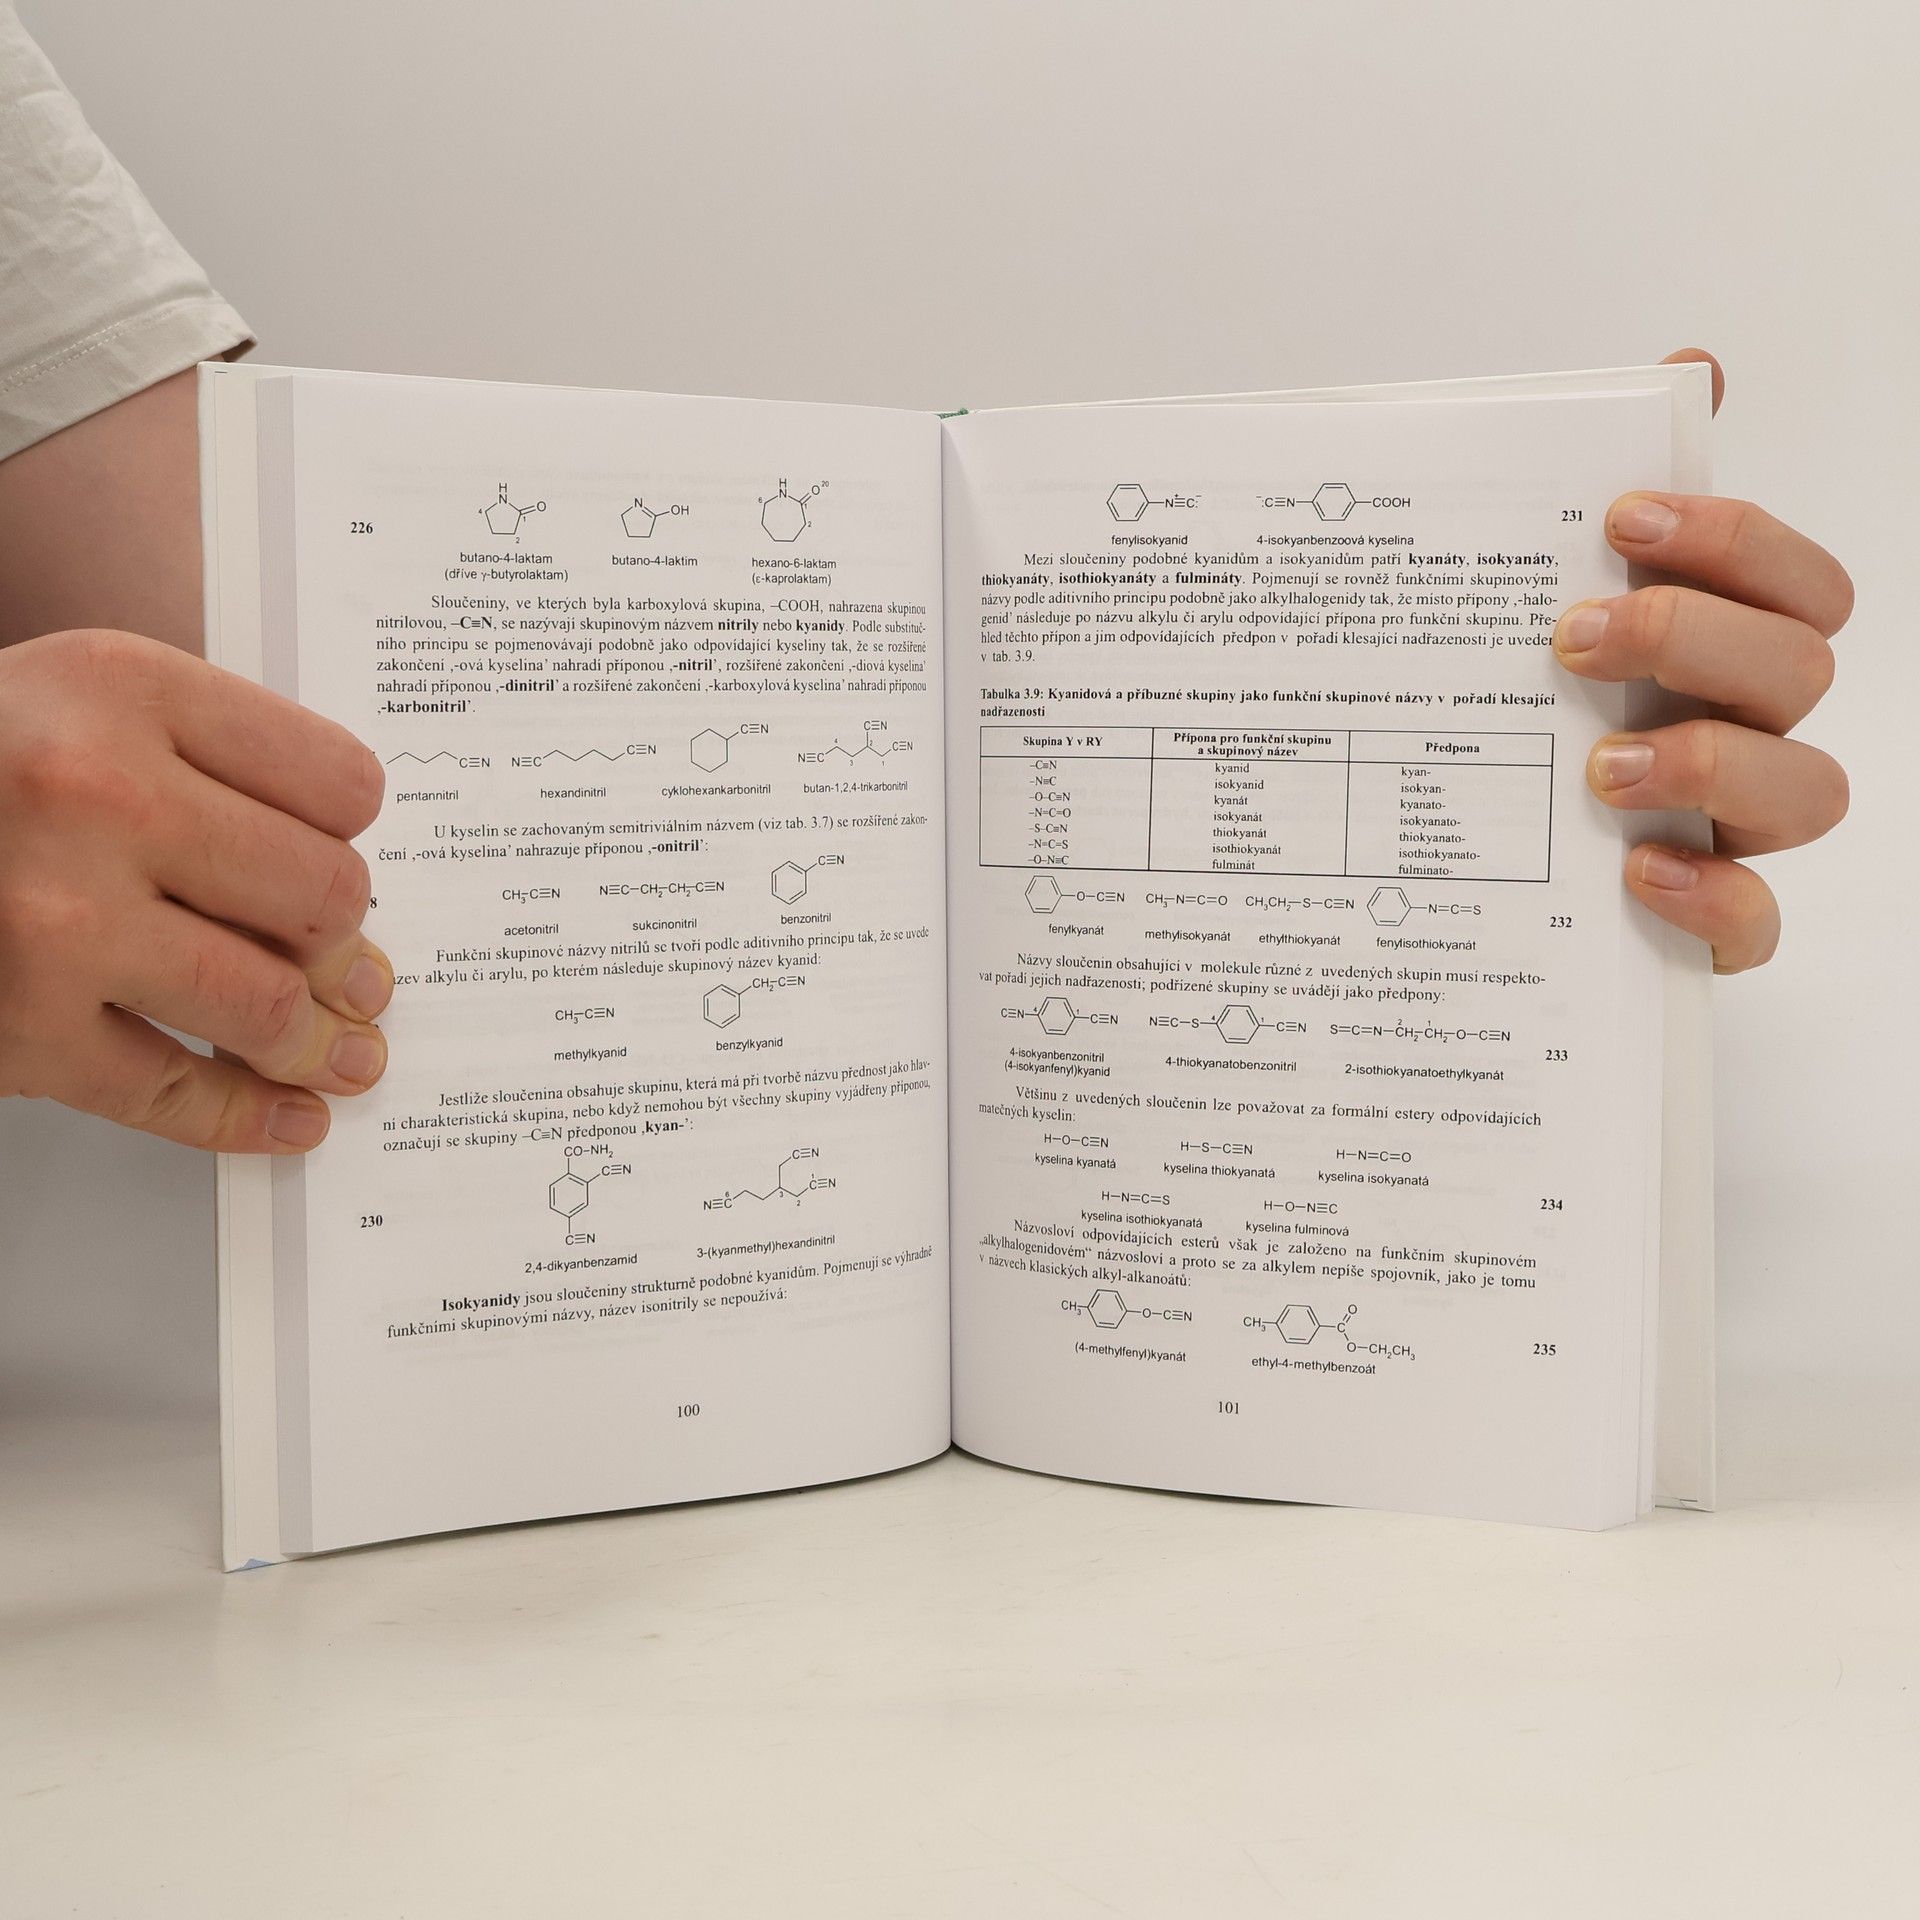 226
butano-4-laktam
(dříve γ-butyrolaktam)
butano-4-laktim
hexano-6-laktam
(ε-kaprolaktam)
Sloučeniny, ve kterých byla karboxylová skupina, –COOH, nahrazena skupinou
nitrilovou, –C≡N, se nazývají skupinovým názvem nitrily nebo kyanidy. Podle substituč-
ního principu se pojmenovávají podobně jako odpovídající kyseliny tak, že se rozšířené
zakončení ‚-ová kyselina’ nahradí příponou ‚-nitril’, rozšířené zakončení ‚-diová kyselina’
nahradí příponou ‚-dinitril’ a rozšířené zakončení ‚-karboxylová kyselina’ nahradí příponou
‚-karbonitril’.
pentannitril
hexandinitril
cyklohexankarbonitril
butan-1,2,4-trikarbonitril
U kyselin se zachovaným semitriviálním názvem (viz tab. 3.7) se rozšířené zakon-
čení ‚-ová kyselina’ nahrazuje příponou ‚-onitril’:
8
CH₃–C≡N
N≡C–CH₂–CH₂–C≡N
C≡N
acetonitril
sukcinonitril
benzonitril
Funkční skupinové názvy nitrilů se tvoří podle aditivního principu tak, že se uvede
alkylu či arylu, po kterém následuje skupinový název kyanid:
CH₃–C≡N
CH₂–C≡N
methylkyanid
benzylkyanid
Jestliže sloučenina obsahuje skupinu, která má při tvorbě názvu přednost jako hlav-
ní charakteristická skupina, nebo když nemohou být všechny skupiny vyjádřeny příponou,
označují se skupiny –C≡N předponou ‚kyan-’:
CO–NH₂
C≡N
C≡N
230
2,4-dikyanbenzamid
3-(kyanmethyl)hexandinitril
Isokyanidy jsou sloučeniny strukturně podobné kyanidům. Pojmenují se výhradně
funkčními skupinovými názvy, název isonitrily se nepoužívá:
100
231
fenylisokyanid
4-isokyanbenzoová kyselina
Mezi sloučeniny podobné kyanidům a isokyanidům patří kyanáty, isokyanáty,
thiokyanáty, isothiokyanáty a fulmináty. Pojmenují se rovněž funkčními skupinovými
názvy podle aditivního principu podobně jako alkylhalogenidy tak, že místo přípony ‚-halo-
genid’ následuje po názvu alkylu či arylu odpovídající přípona pro funkční skupinu. Pře-
hled těchto přípon a jim odpovídajících předpon v pořadí klesající nadřazenosti je uveden
v tab. 3.9.
Tabulka 3.9: Kyanidová a příbuzné skupiny jako funkční skupinové názvy v pořadí klesající
nadřazenosti
Skupina Y v RY Přípona pro funkční skupinu a skupinový název Předpona
–C≡N kyanid kyan-
–N≡C isokyanid isokyan-
–O–C≡N kyanát kyanato-
–N=C=O isokyanát isokyanato-
–S–C≡N thiokyanát thiokyanato-
–N=C=S isothiokyanát isothiokyanato-
–O–N≡C fulminát fulminato-
O–C≡N
CH₃–N=C=O
CH₃CH₂–S–C≡N
N=C=S
232
fenylkyanát
methylisokyanát
ethylthiokyanát
fenylisothiokyanát
Názvy sloučenin obsahující v molekule různé z uvedených skupin musí respekto-
vat pořadí jejich nadřazenosti; podřízené skupiny se uvádějí jako předpony:
233
4-isokyanbenzonitril
(4-isokyanfenyl)kyanid
4-thiokyanatobenzonitril
2-isothiokyanatoethylkyanát
Většinu z uvedených sloučenin lze považovat za formální estery odpovídajících
matečných kyselin:
H–O–C≡N
H–S–C≡N
H–N=C=O
kyselina kyanatá
kyselina thiokyanatá
kyselina isokyanatá
H–N=C=S
H–O–N≡C
234
kyselina isothiokyanatá
kyselina fulminová
Názvosloví odpovídajících esterů však je založeno na funkčním skupinovém
„alkylhalogenidovém“ názvosloví a proto se za alkylem nepíše spojovník, jako je tomu
v názvech klasických alkyl-alkanoátů:
CH₃
O–C≡N
CH₃
C
O
O–CH₂CH₃
235
(4-methylfenyl)kyanát
ethyl-4-methylbenzoát
101